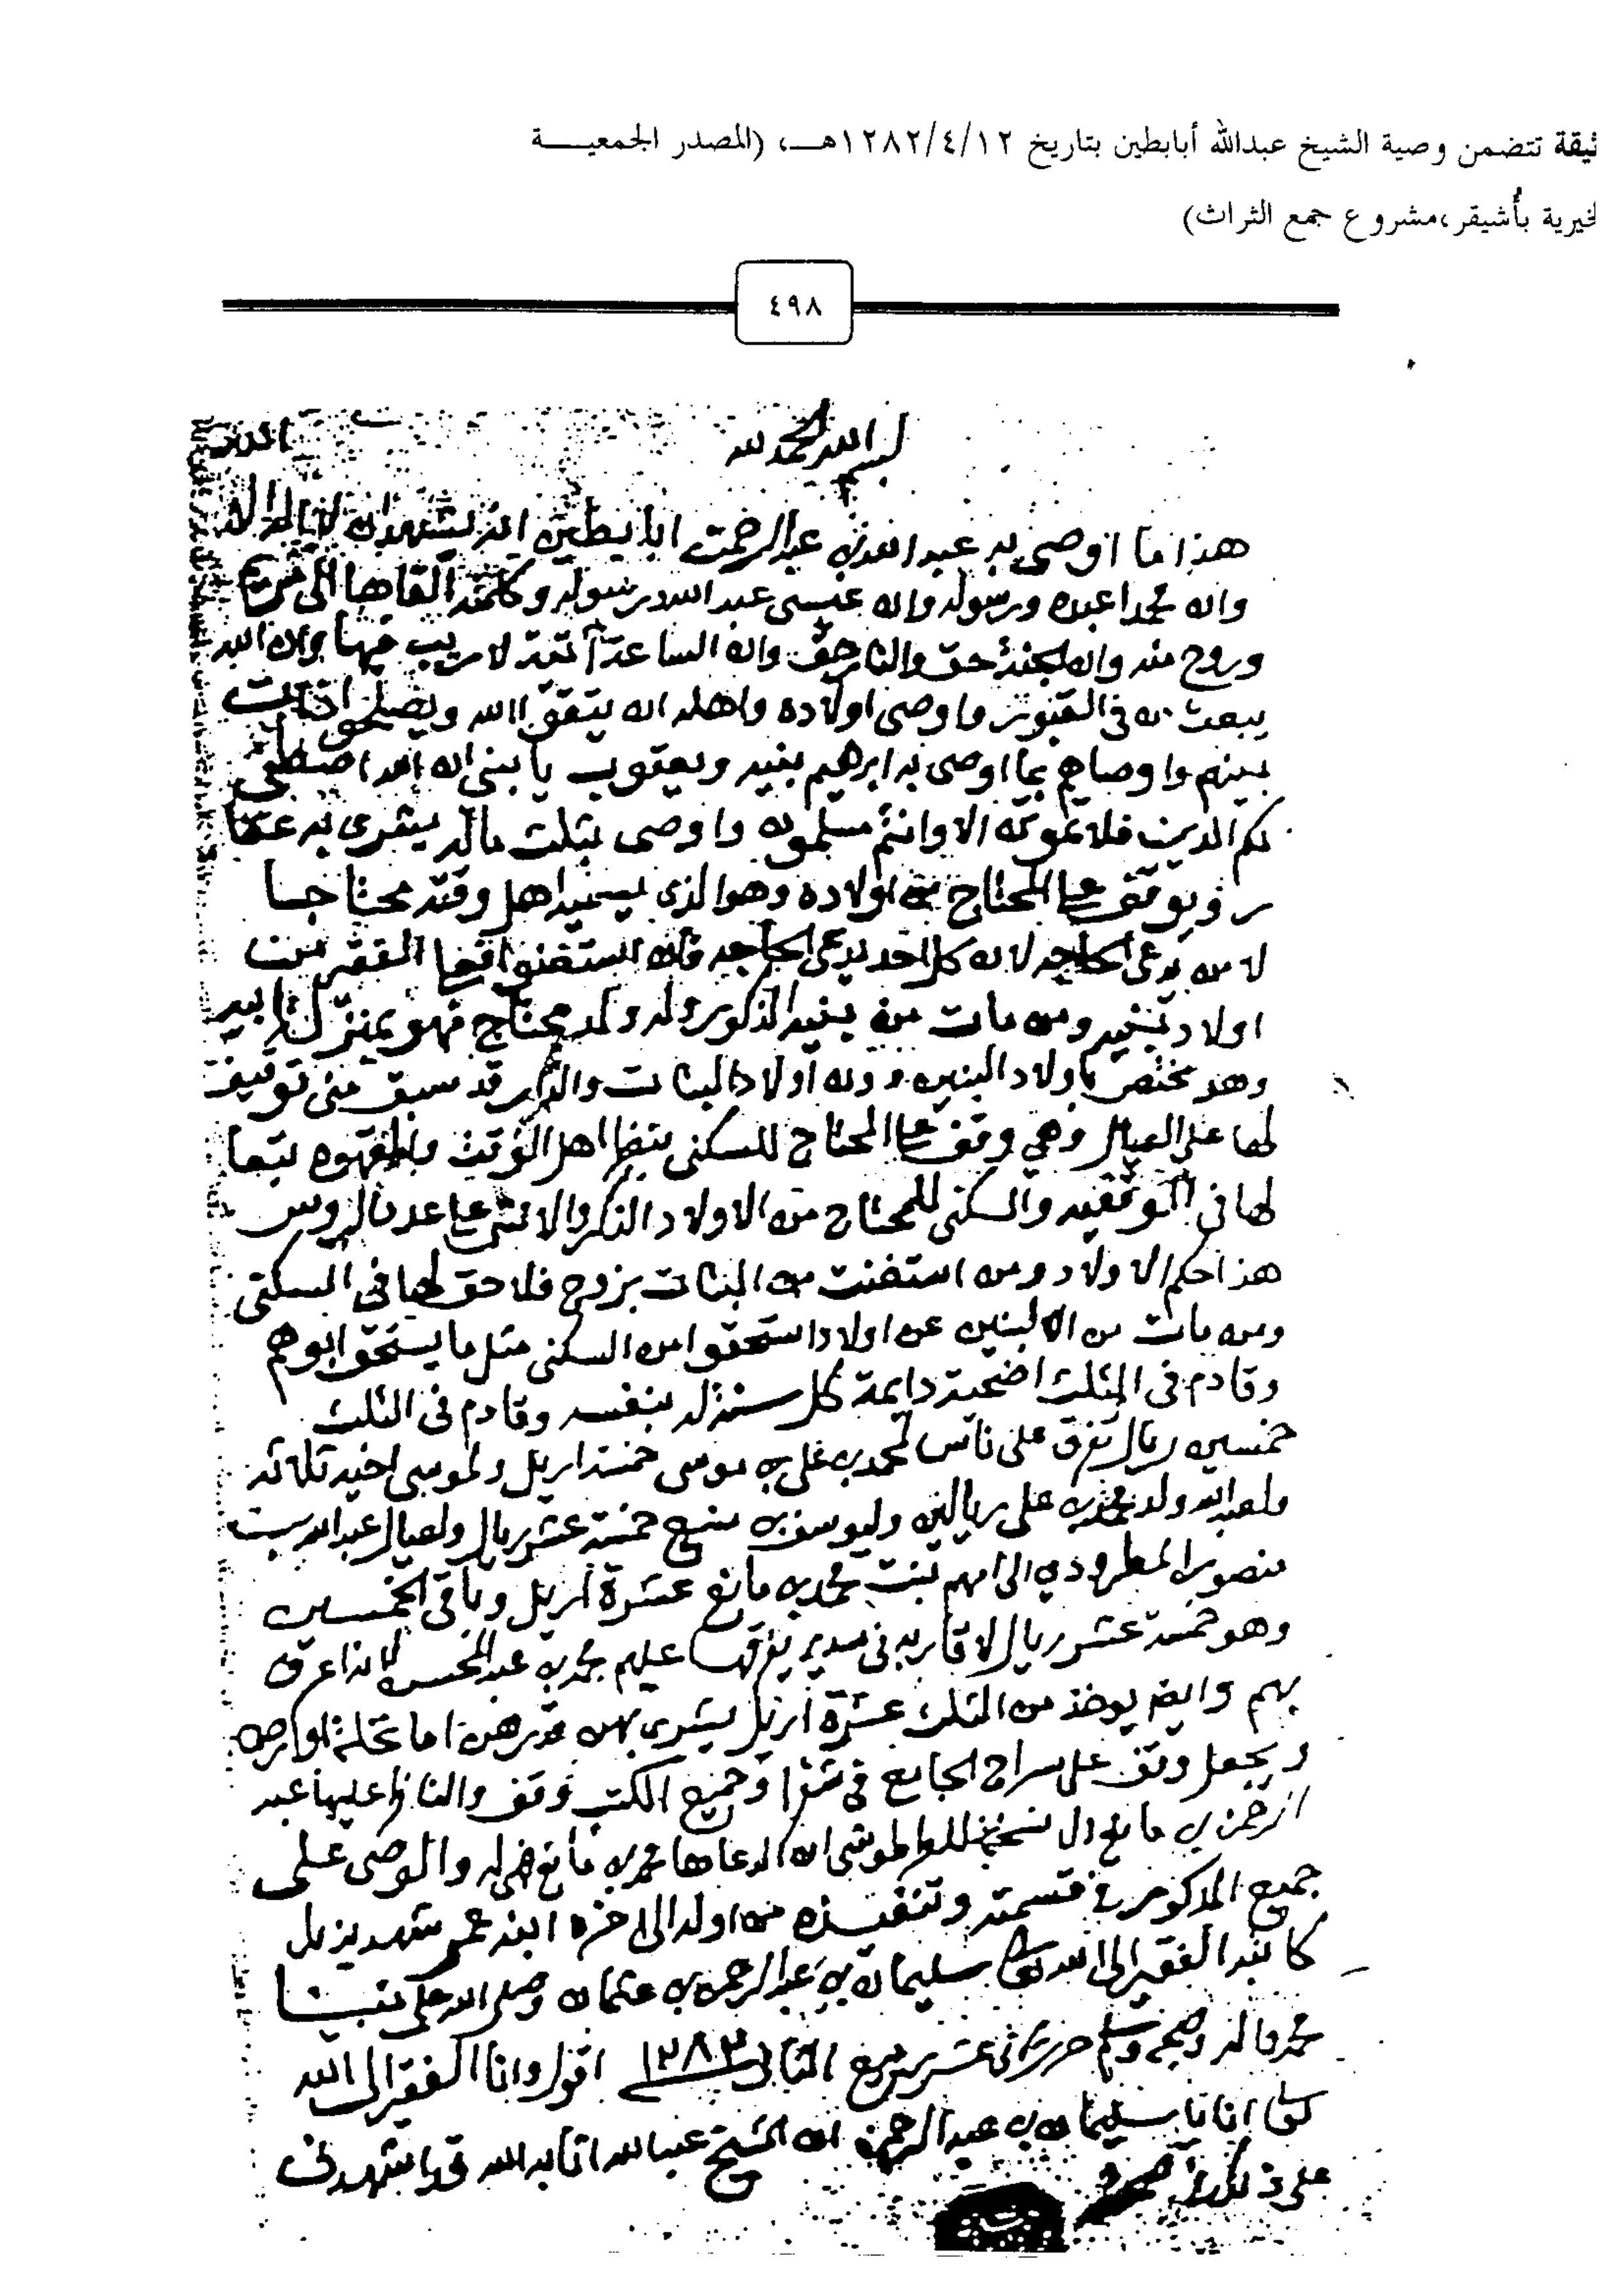 ثيقة تتضمن وصية الشيخ عبدالله أبابطين بتاريخ ١٢٨٢/٤/١٢هـ، (المصدر الجمعيـــة
لخيرية بأشيقر،مشروع جمع التراث)
٤٩٨
بسم الله الحمد لله
هذا ما اوصى به عبد الله بن عبدالرحمن ابابطين انه يشهد ان لا اله الا الله
وان محمدا عبده ورسوله وان عيسى عبد الله ورسوله وكلمته القاها الى مريم
وروح منه وان الجنة حق والنار حق وان الساعة آتية لا ريب فيها وان الله
يبعث من في القبور واوصى اولاده واهله ان يتقوا الله ويصلحوا ذات
بينهم واوصاهم بما اوصى به ابرهيم بنيه ويعقوب يا بني ان الله اصطفى
لكم الدين فلا تموتن الا وانتم مسلمون واوصى بثلث ماله يشرى به عقار
ويوقف على المحتاج من اولاده وهو الذي يسميه اهل وقته محتاجا
لا من يدعي الحاجه لان كل احد يدعي الحاجه فان استغنوا فعلى الفقير من
اولاد بنيه ومن مات من بنيه الذكور وله ولد محتاج فهو بمنزلة ابيه
وهو مختص باولاد البنين دون اولاد البنات والدار قد سبق مني توقيف
لها على العيال وهي وقف على المحتاج للسكنى بنظر اهل الوقت والقهوه تبعا
لها في التوقيف والسكنى للمحتاج من الاولاد الذكر والانثى على عدد الروس
هذا حكم الاولاد ومن استغنت من البنات بزوج فلا حق لها في السكنى
ومن مات من البنين عن اولاد استحقوا من السكنى مثل ما يستحق ابوهم
وقادم في الثلث اضحية دايمة كل سنة له بنفسه وقادم في الثلث
خمسين ريال تفرق على ناس لمحمد بن علي بن موسى خمسة اريل ولموسى اخيه ثلاثه
ولعبد الله ولد محمد بن علي ريالين وليوسف بن منيع خمسة عشر ريال ولعيال عبد الله بن
منصور المطرودي الى امهم بنت محمد بن مانع عشرة اريل وباقي الخمسين
وهو خمسة عشر ريال لاقاربه في سدير يفرقها عليهم محمد بن عبد المحسن لانه اعرف
بهم وايضا يوخذ من الثلث عشرة اريل يشرى بهن قدرهن اما نخلة او ارض
ويجعل وقف على سراج الجامع في شقرا وجميع الكتب وقف والناظر عليها عبد
الرحمن بن مانع الطرطوشي ان ادعاها محمد بن مانع فهي له والوصي على
جميع المذكور في قسمته وتنفيذه من اوله الى اخره ابنه عمر شهد بذلك
كاتبه الفقير الى الله تعالى سليمان بن عبد الرحمن بن عثمان وصلى الله على نبينا
محمد واله وصحبه وسلم حرر ثاني عشر ربيع الثاني ١٢٨٢ اقول وانا الفقير الى الله
تعالى انا يا سليمان بن عبد الرحمن ان الشيخ عبد الله اثابه الله قد اشهدني
على ذلك